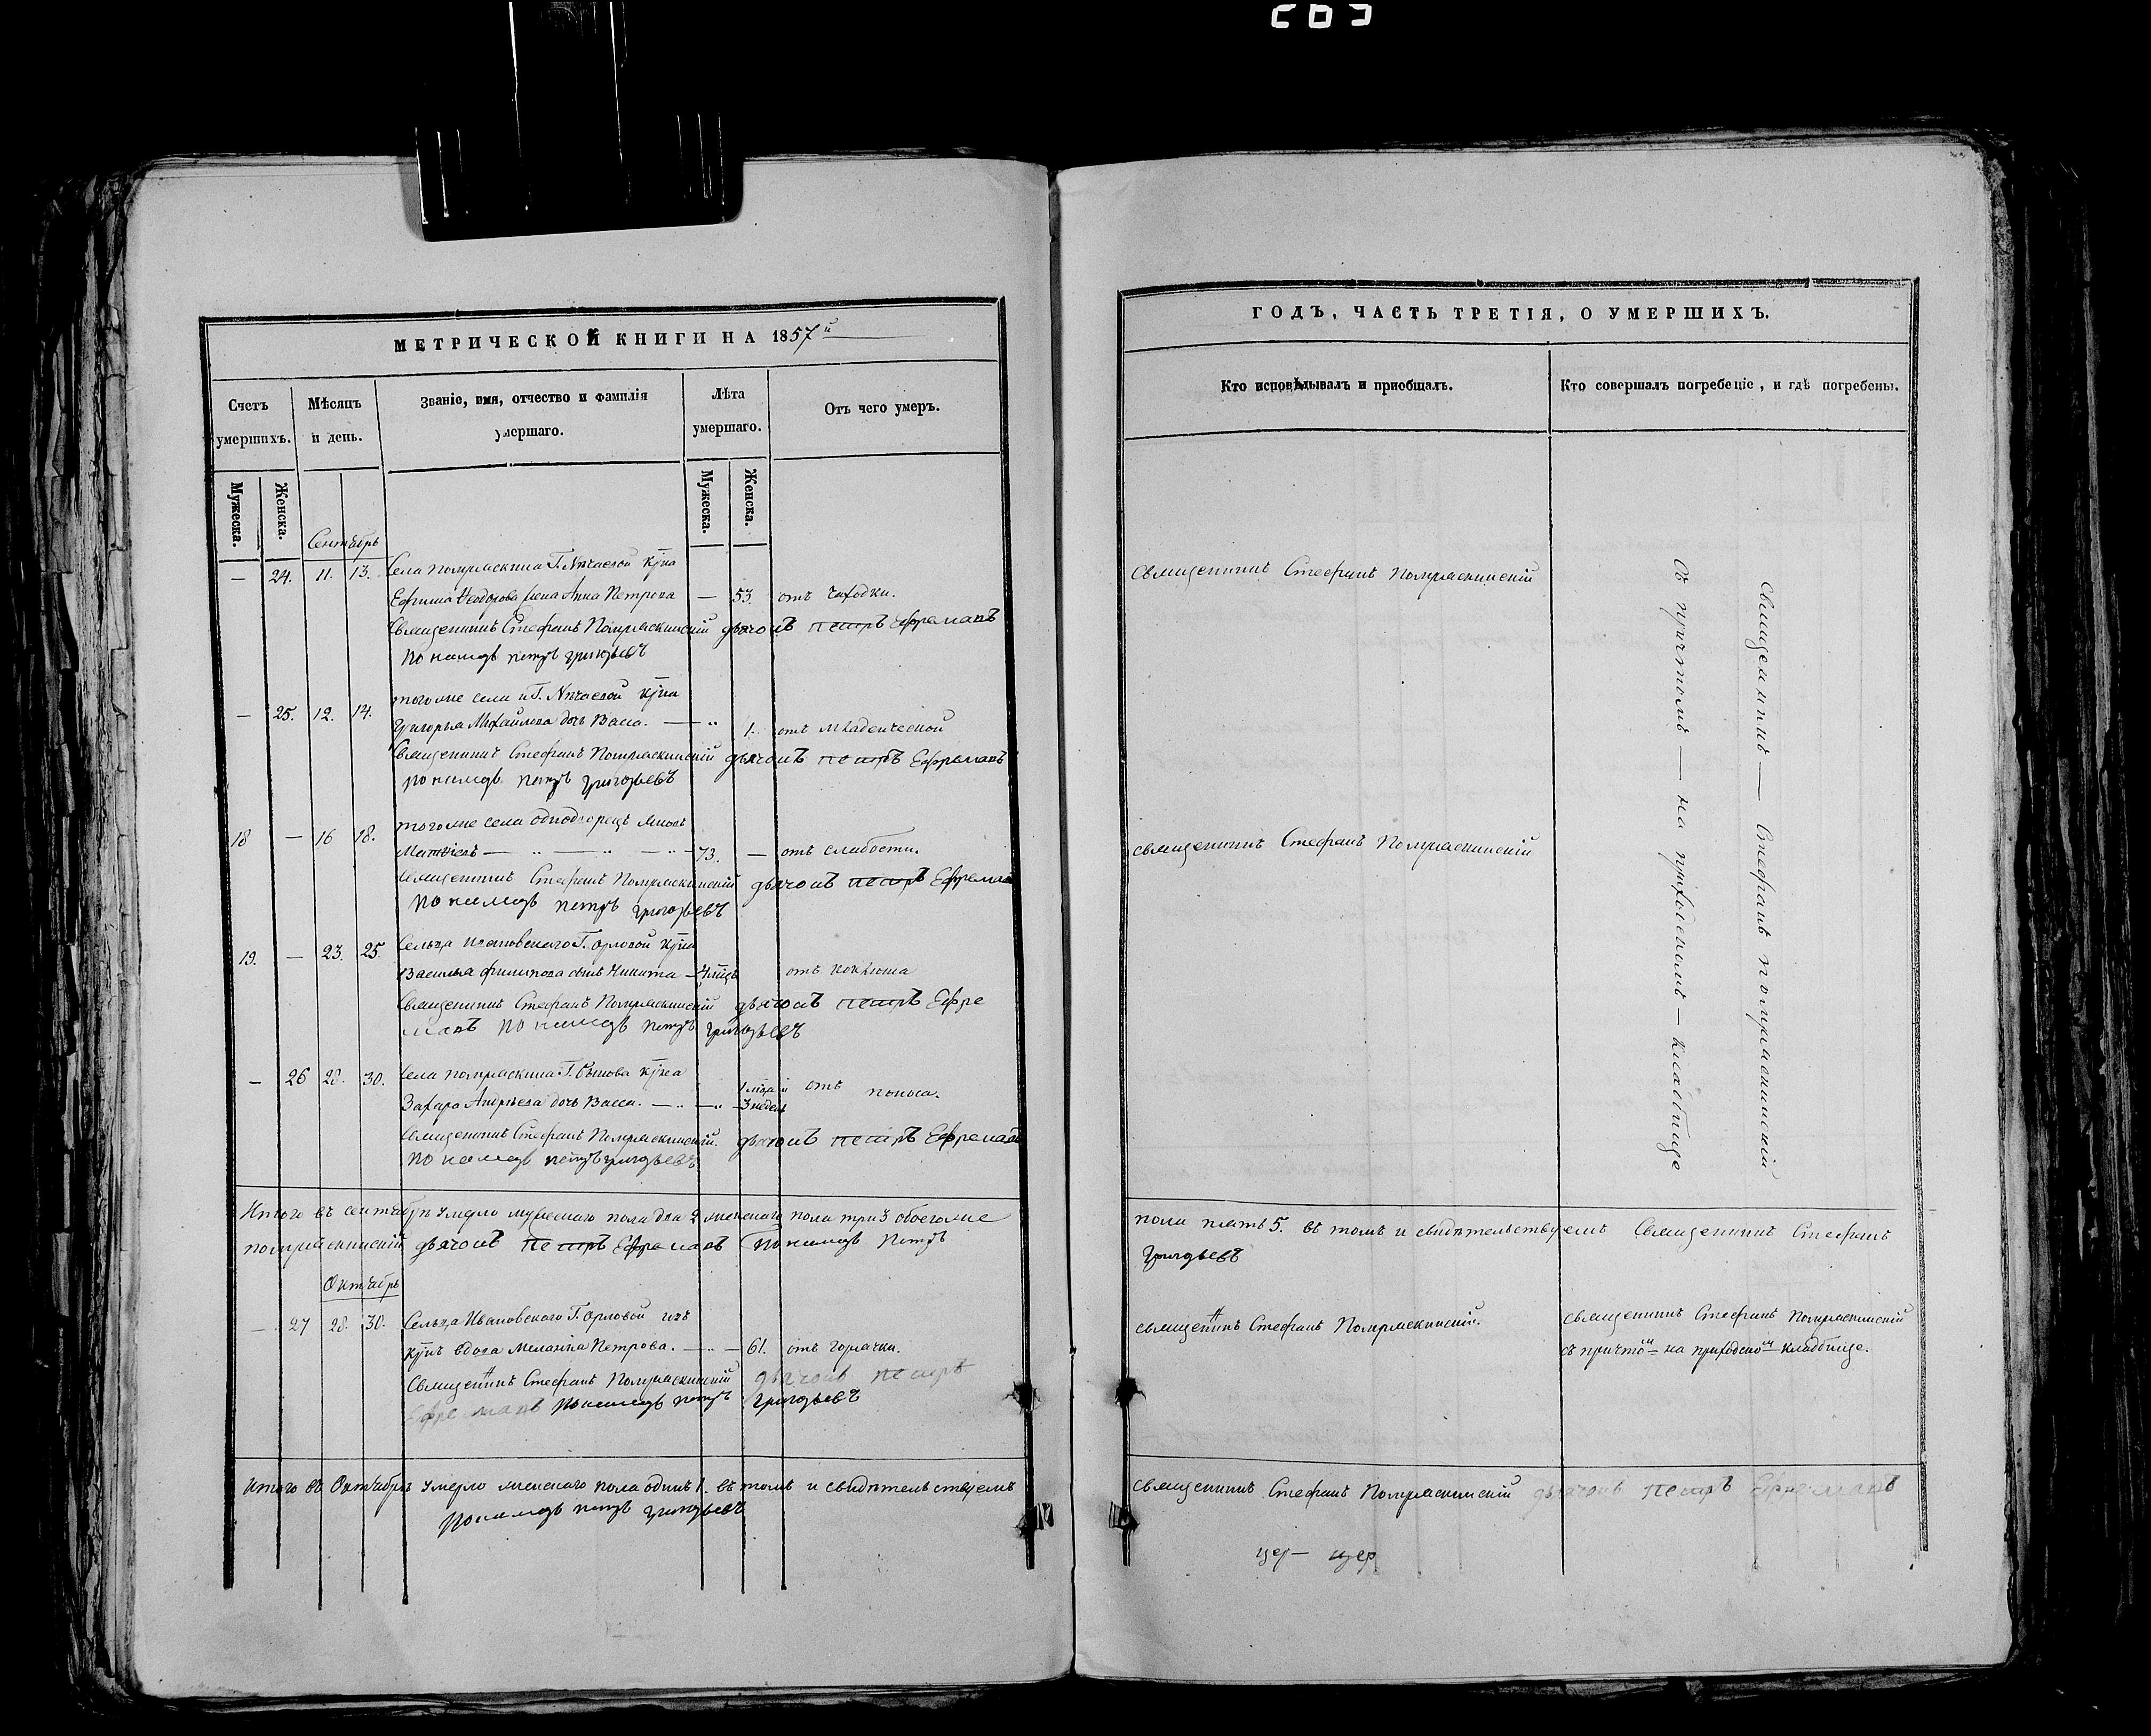 МЕТРИЧЕСКОЙ КНИГИ НА 1857й
Счетъ умершихъ.
Мѣсяцъ и день.
Званіе, имя, отчество и фамилія умершаго.
Лѣта умершаго.
Отъ чего умеръ.
Мужеска.
Женска.
Мужеска.
Женска.
Сентябрь
— 24. 11. 13. Села Г. кр̃на
Ефима Ѳеодорова жена Анна Петрова — 53. отъ чаходки.
Священникъ Стефанъ дьячокъ петръ Ефремовъ
пономарь петръ григорьевъ
— 25. 12. 14. тогоже села и Г. кр̃на
Григорья Михайлова дочь Васса. — „ 1. отъ младенческой
Священникъ Стефанъ дьячокъ петръ Ефремовъ
пономарь петръ григорьевъ
18 — 16 18. тогоже села однодворецъ
Матвіевъ — „ — „ — „ — 73. — отъ слабости.
священникъ Стефанъ дьячокъ петръ Ефремовъ
пономарь петръ григорьевъ
19. — 23. 25. Сельца Ивановскаго Г. Орловой кр̃на
Василья филипова сынъ Никита — отъ коклюша
Священникъ Стефанъ дьячокъ петръ Ефре
мовъ пономарь петръ григорьевъ
— 26 28. 30. Села Г. кр̃на
Захара Андреева дочь Васса. — „ — „ — 1 мца и 3 недель отъ поноса.
Священникъ Стефанъ дьячокъ петръ Ефремовъ
пономарь петръ григорьевъ
Итого въ сентябрѣ умерло мужескаго пола два 2 женскаго пола три 3 обоегоже
дьячокъ петръ Ефремовъ Пономарь Петръ
Октябрь
— 27 28. 30. Сельца Ивановскаго Г. Орловой изъ
кр̃нъ вдова Меланіа Петрова. — „ — 61. отъ горячки.
Священникъ Стефанъ дьячокъ петръ
Ефремовъ пономарь петръ григорьевъ
Итого въ Октябрѣ умерло женскаго пола одинъ 1. въ томъ и свидѣтельствуемъ
Пономарь петръ григорьевъ
ГОДЪ, ЧАСТЬ ТРЕТІЯ, О УМЕРШИХЪ.
Кто исповѣдывалъ и приобщалъ.
Кто совершалъ погребеніе, и гдѣ погребены.
Священникъ Стефанъ
священникъ Стефанъ
Священникъ — Стефанъ
Съ причтомъ — на приходскомъ — кладбище
пола пять 5. въ томъ и свидѣтельствуемъ Священникъ Стефанъ
Григорьевъ
священникъ Стефанъ
священникъ Стефанъ
съ причтомъ на приходскомъ кладбище.
священникъ Стефанъ дьячокъ петръ Ефремовъ
цер — цер